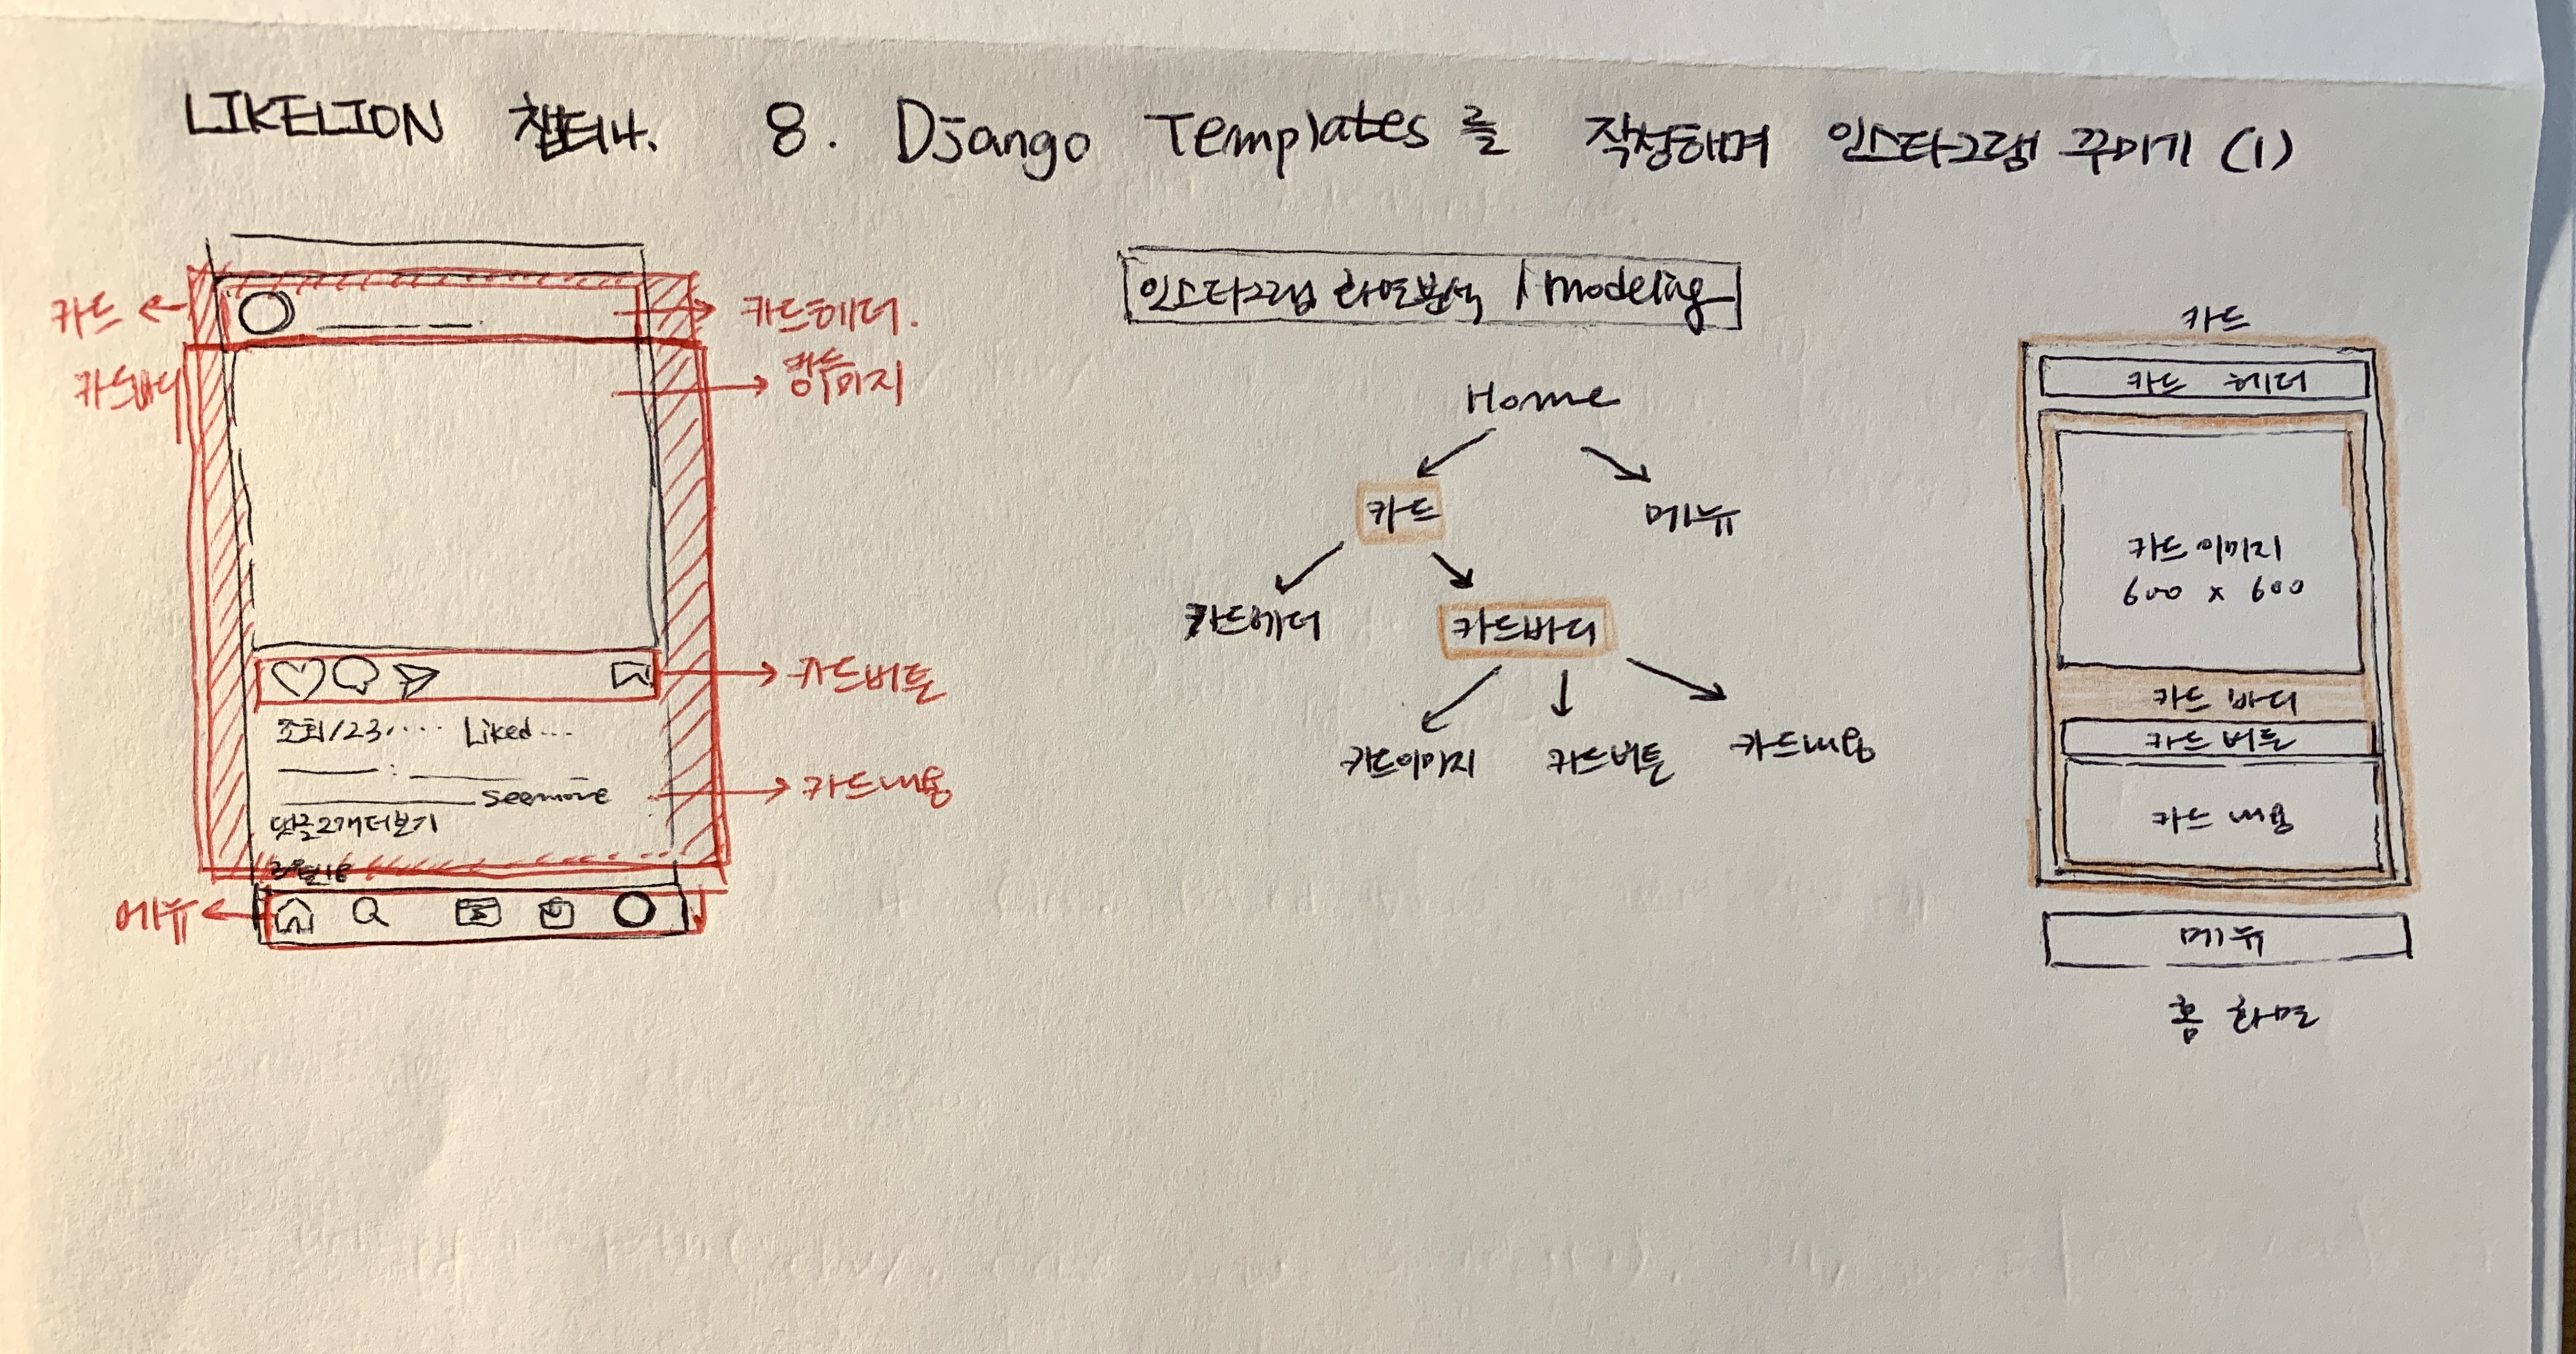 LIKELION 챕터4. 8. Django Templates를 작성하며 인스타그램 꾸미기 (1)
카드
카드헤더.
카드바디
카드이미지
카드버튼
조회123,.... Liked...
:
seemore
카드내용
댓글2개더보기
3월18
메뉴
인스타그램 화면분석 / modeling
Home
카드
메뉴
카드헤더
카드바디
카드이미지
카드버튼
카드내용
카드
카드 헤더
카드이미지
600 x 600
카드 바디
카드 버튼
카드 내용
메뉴
홈 화면